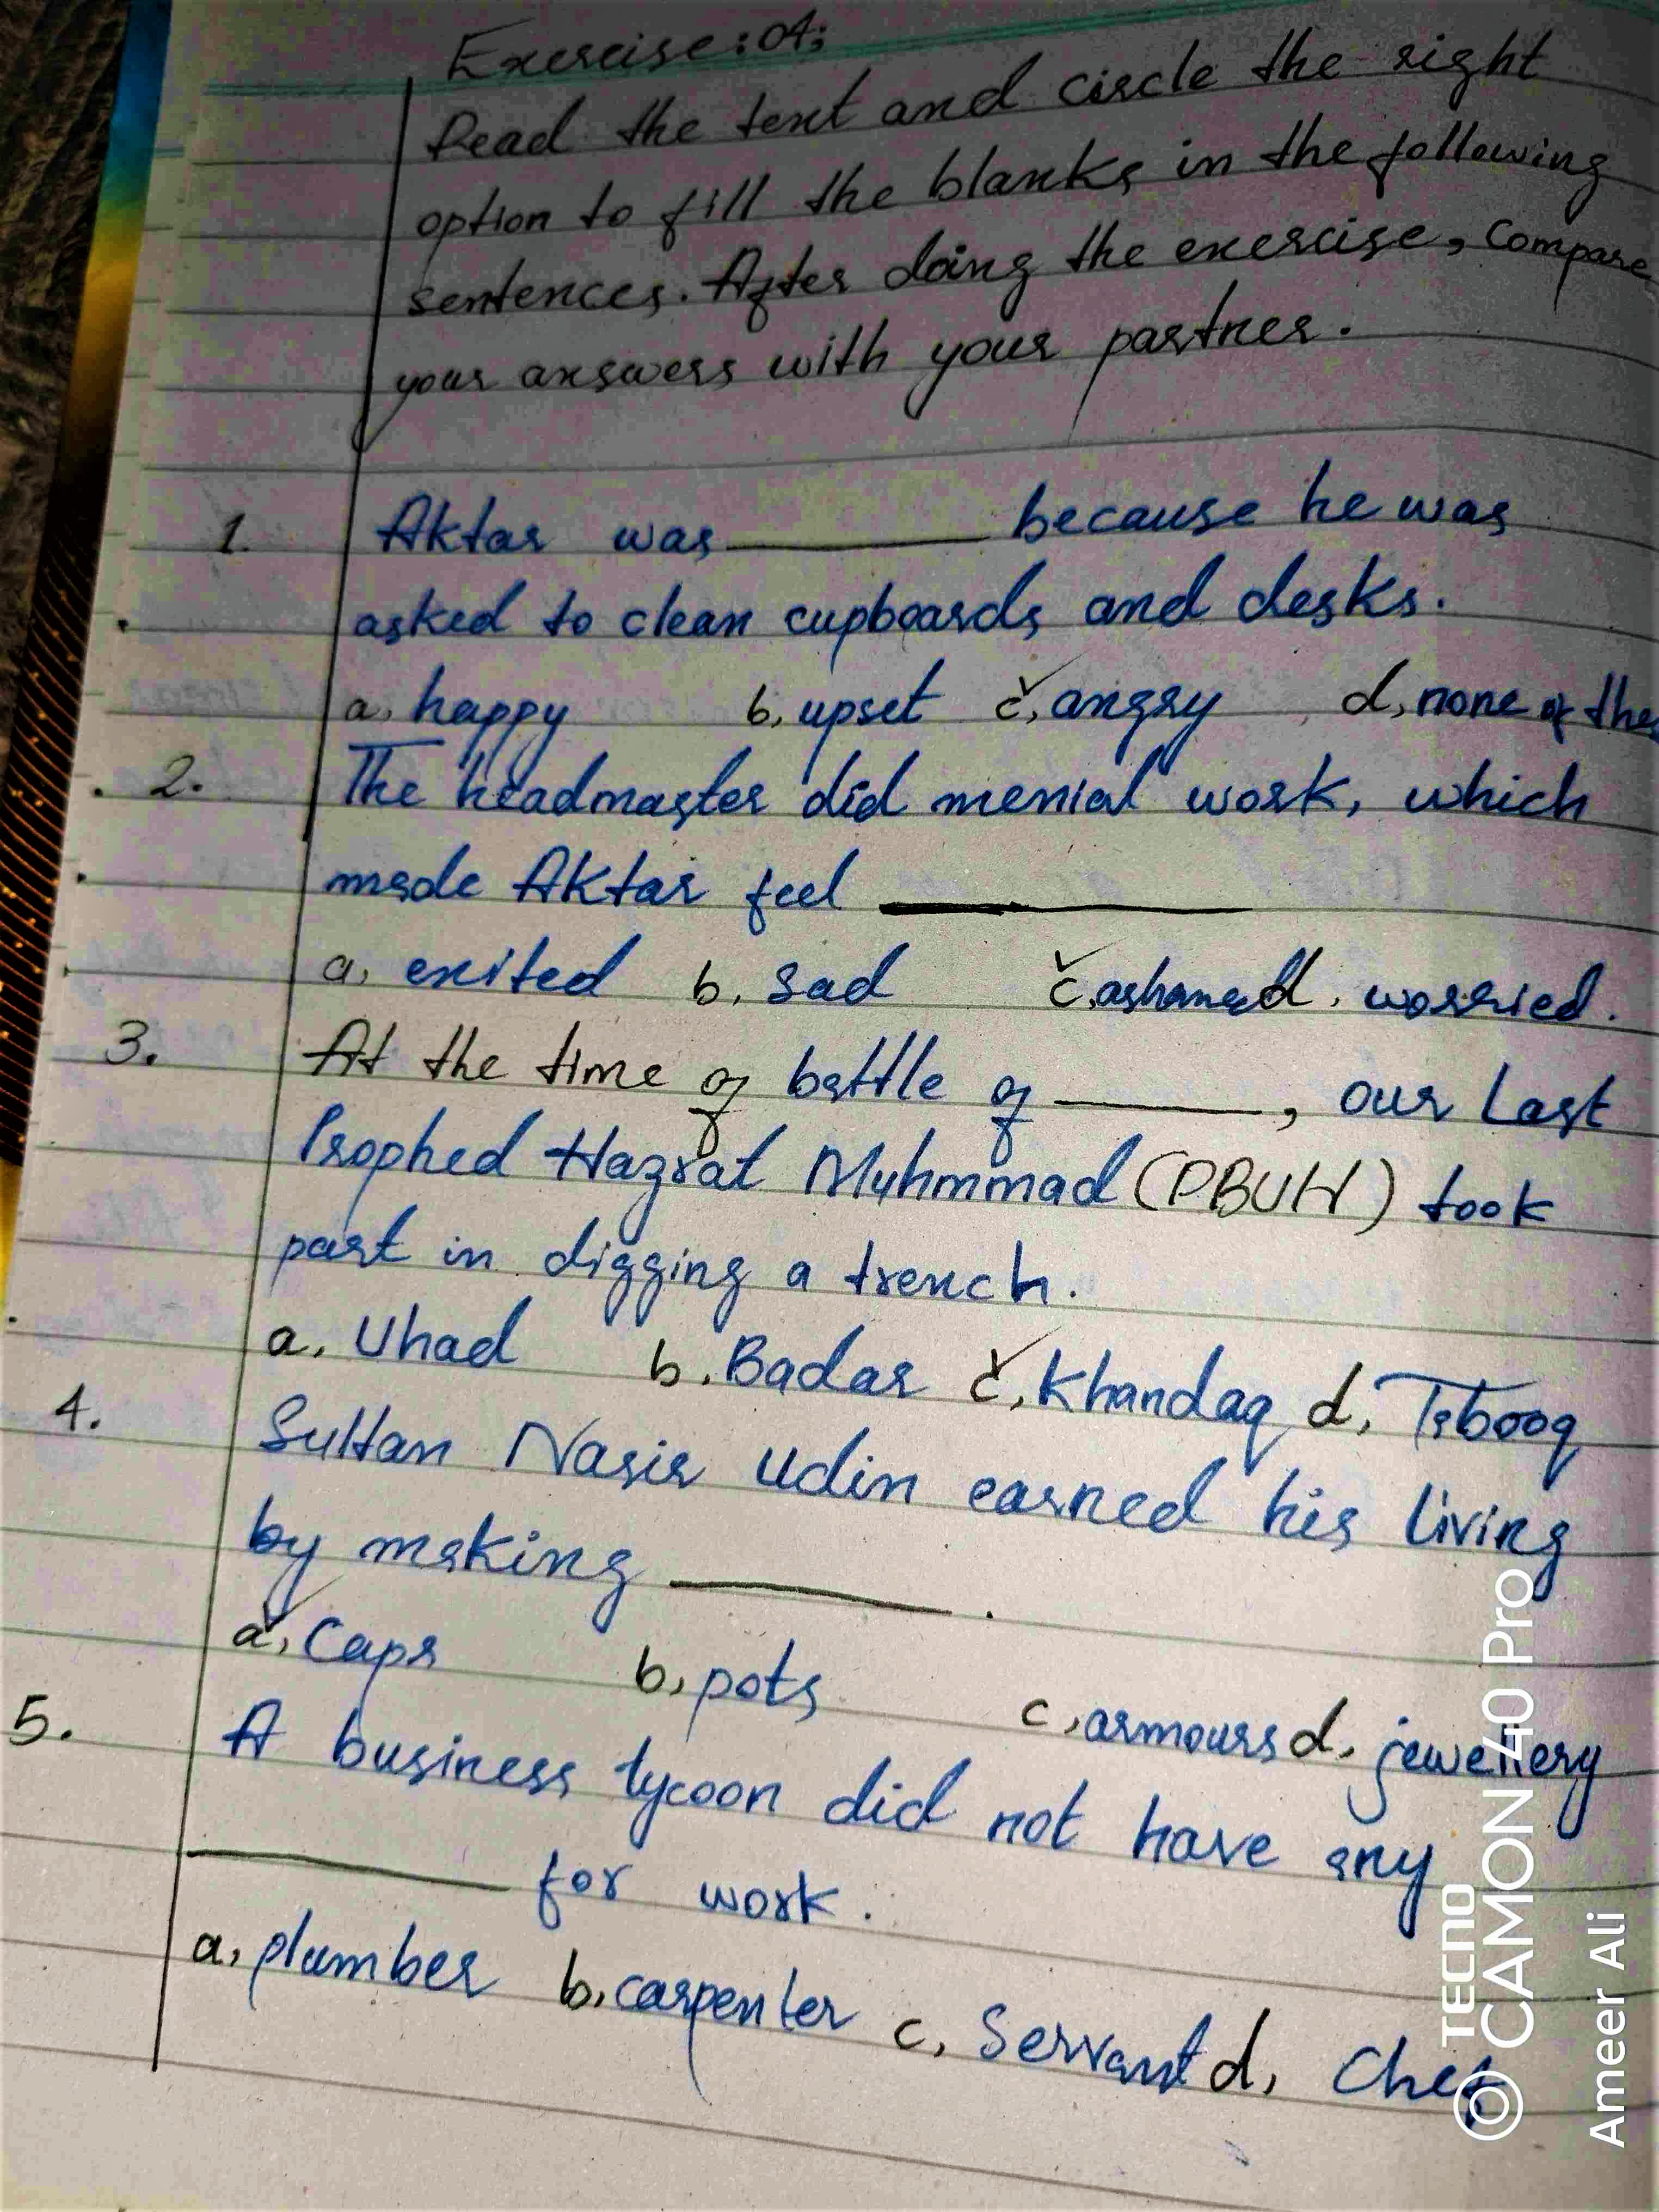 Exercise: 04;
Read the text and circle the right
option to fill the blanks in the following
sentences. After doing the exercise, Compare
your answers with your partner.
1. Aktar was ______ because he was
asked to clean cupboards and desks.
a, happy b, upset c, angry d, none of the
2. The headmaster did menial work, which
made Aktar feel ______
a, exited b, sad c, ashamed d, worried.
3. At the time of battle of ______, our Last
Prophed Hazrat Muhmmad (PBUH) took
part in digging a trench.
a, Uhad b, Badar c, Khandaq d, Tabooq
4. Sultan Nasir Udin earned his living
by making ______.
a, Caps b, pots c, armours d, jewellery
5. A business tycoon did not have any
______ for work.
a, plumber b, carpenter c, Servant d, Chef
TECNO
CAMON 40 Pro
Ameer Ali